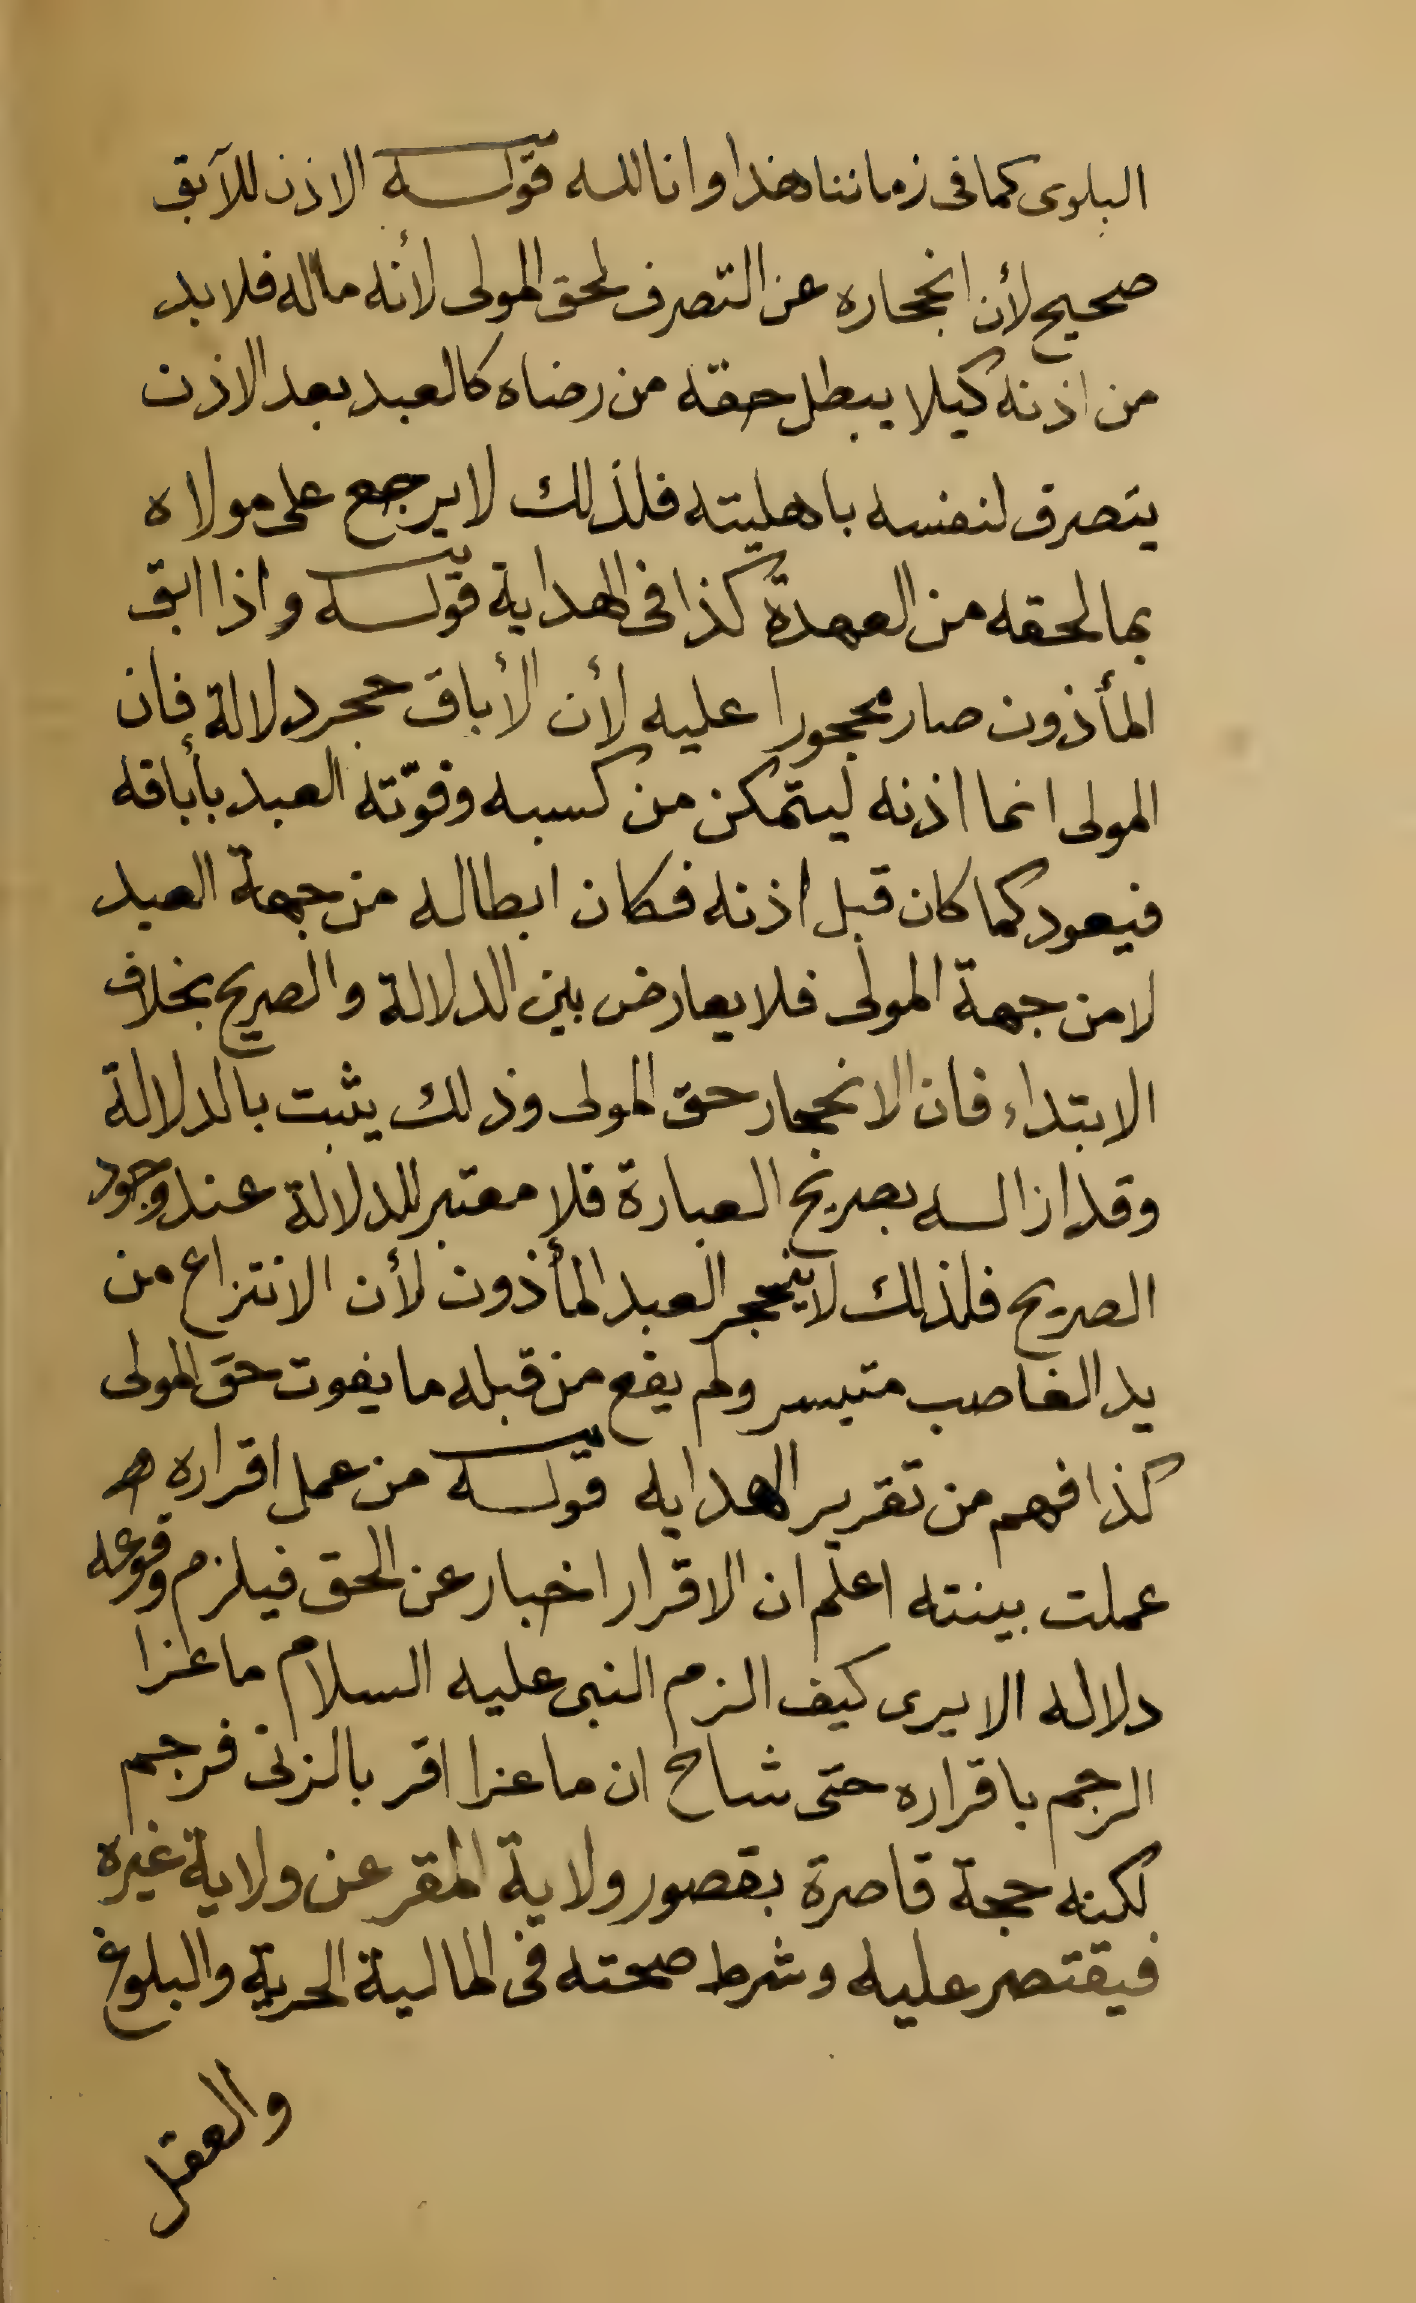 البلوى كما فى زماننا هذا وانا لله قوله الاذن للآبق
صحيح لأن انحجاره عن التصرف لحق المولى لأنه ماله فلا بد
من اذنه كيلا يبطل حقه من رضاه كالعبد بعد الاذن
يتصرف لنفسه باهليته فلذلك لا يرجع على مولاه
بما لحقه من العهدة كذا فى الهداية قوله واذا ابق
المأذون صار محجورا عليه لأن الأباق حجر دلالة فان
المولى انما اذنه ليتمكن من كسبه وفوّته العبد بأباقه
فيعود كما كان قبل اذنه فكان ابطاله من جهة العبد
لا من جهة المولى فلا يعارض بين الدلالة والصريح بخلاف
الابتداء فان الانحجار حق المولى وذلك يثبت بالدلالة
وقد ازاله بصريح العبارة فلا معتبر للدلالة عند وجود
الصريح فلذلك لا ينحجر العبد المأذون لأن الانتزاع من
يد الغاصب متيسر ولم يقع من قبله ما يفوت حق المولى
كذا فهم من تقرير الهدايه قوله من عمل اقراره
عملت بينته اعلم ان الاقرار اخبار عن الحق فيلزم وقوعه
دلاله الا يرى كيف الزم النبى عليه السلام ماعزا
الرجم باقراره حتى شاخ ان ماعزا اقر بالزنى فرجم
لكنه حجة قاصرة بقصور ولاية المقر عن ولاية غيره
فيقتصر عليه وشرط صحته فى المالية الحرية والبلوغ
والعقل